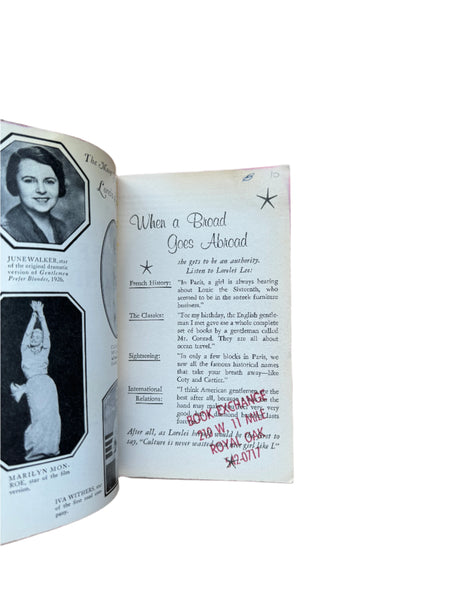 The Many
Lorelei
JUNE WALKER, star
of the original dramatic
version of Gentlemen
Prefer Blondes, 1926.
MARILYN MON-
ROE, star of the film
version.
IVA WITHERS,
of the first road com-
pany.
10
When a Broad
Goes Abroad
she gets to be an authority.
Listen to Lorelei Lee:
French History:
"In Paris, a girl is always hearing
about Louie the Sixteenth, who
seemed to be in the anteek furniture
business."
The Classics:
"For my birthday, the English gentle-
man I met gave me a whole complete
set of books by a gentleman called
Mr. Conrad. They are all about
ocean travel."
Sightseeing:
"In only a few blocks in Paris, we
saw all the famous historical names
that take your breath away—like
Coty and Cartier."
International
Relations:
"I think American gentlemen are the
best after all, because kissing your
hand may make you feel very very
good but a diamond lasts
After all, as Lorelei herself would be the first to
say, "Culture is never wasted on a girl like I."
BOOK EXCHANGE
219 W. 11 MILE
ROYAL OAK
542-0717